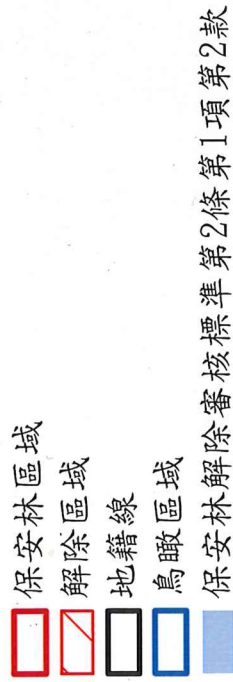 保安林區域
解除區域
地籍線
鳥瞰區域
保安林解除審核標準第2條第1項第2款